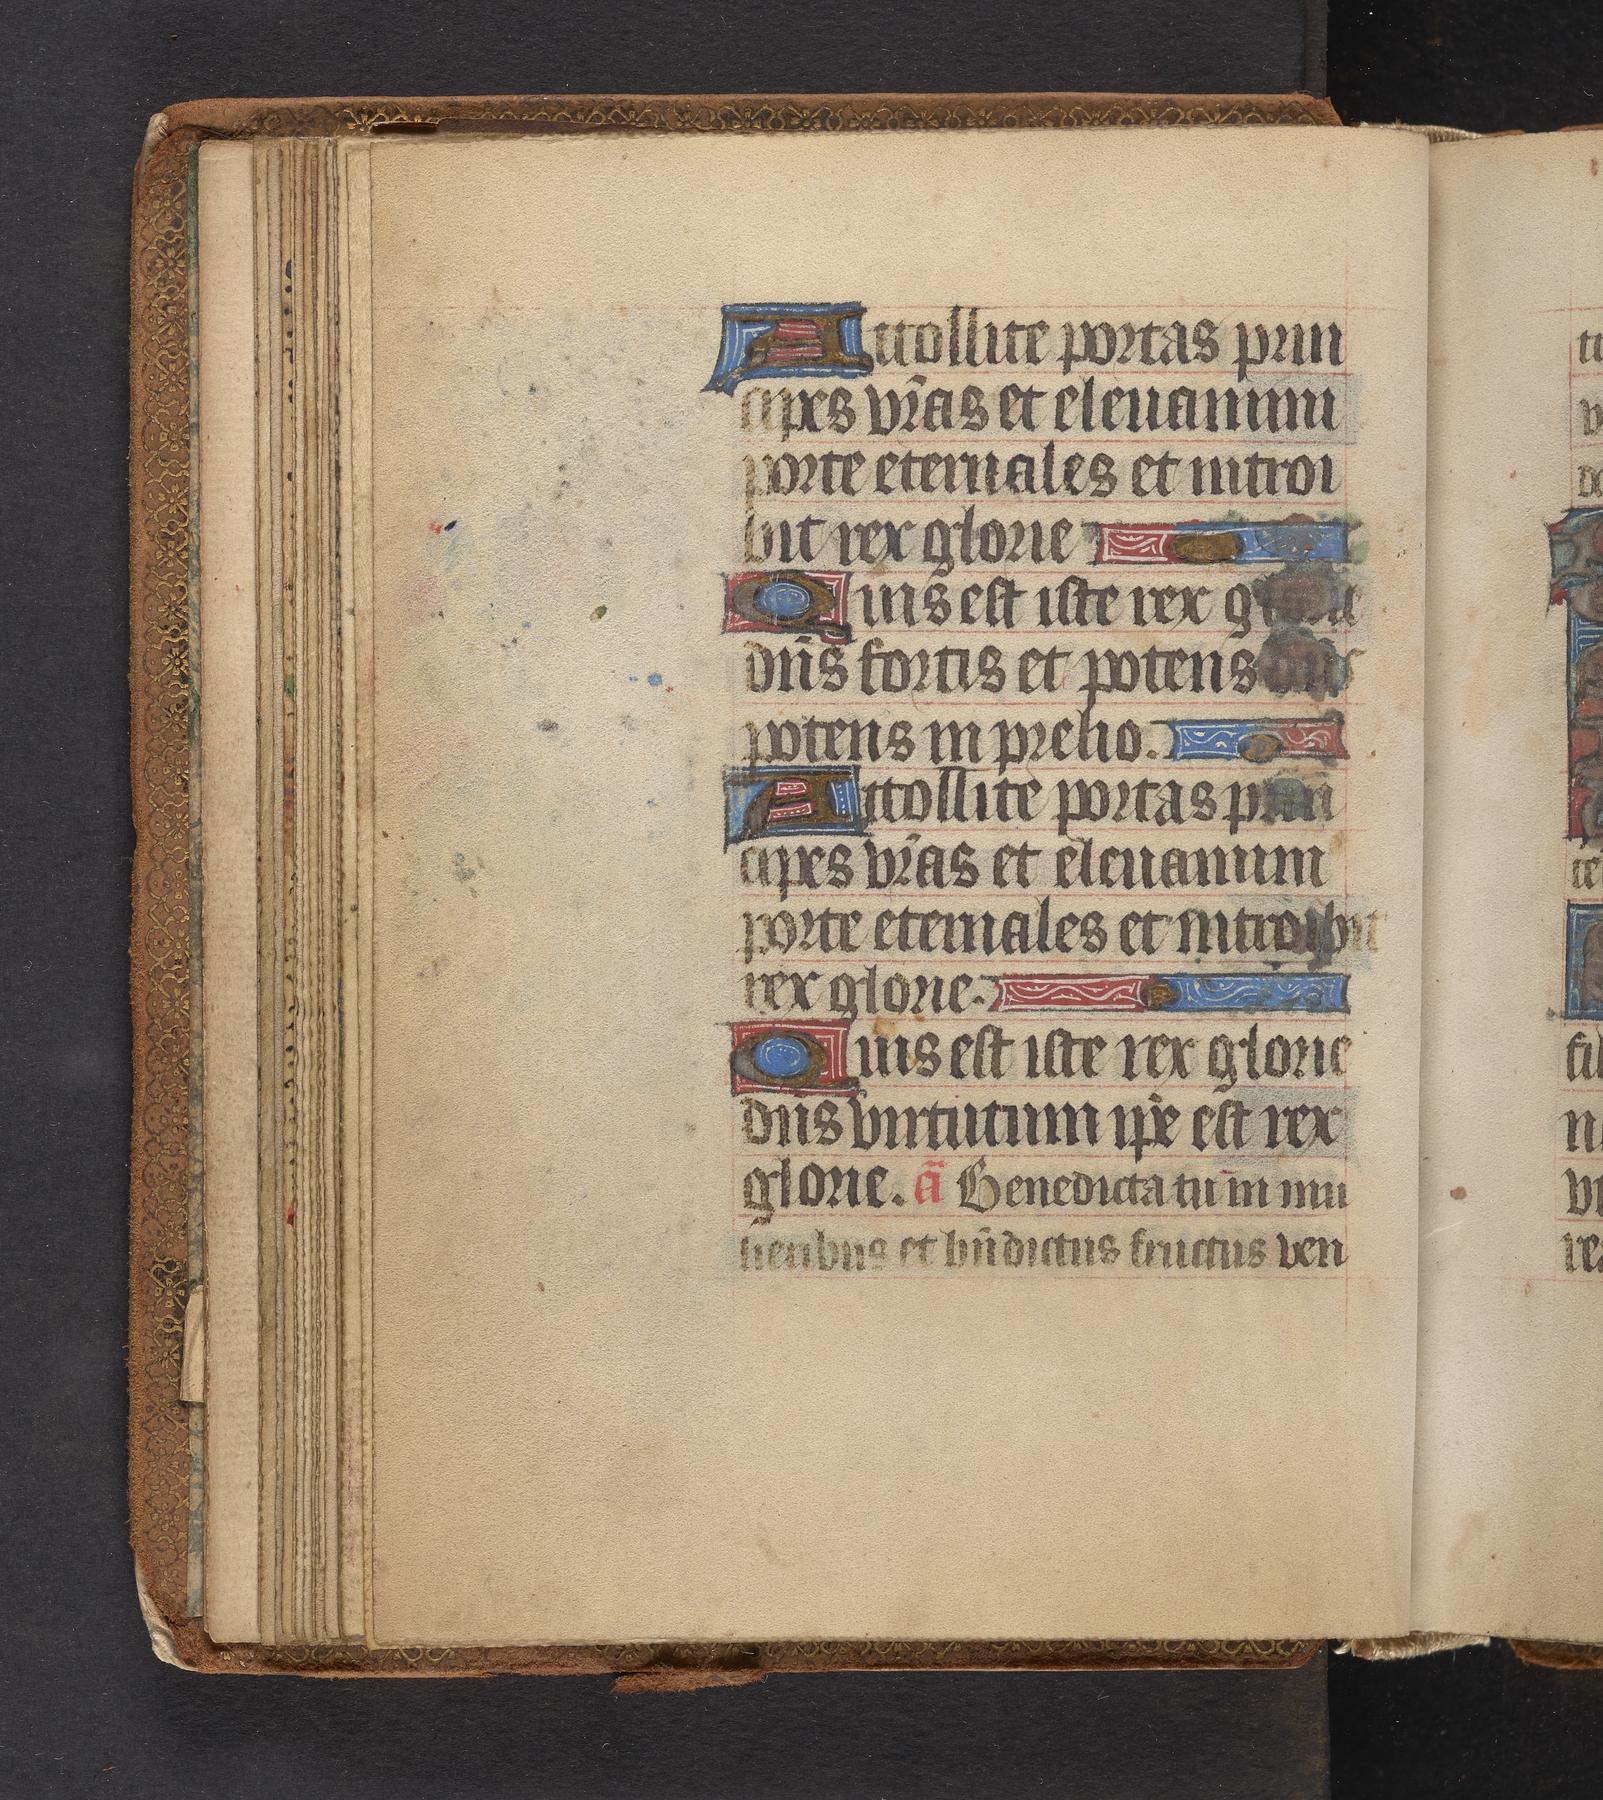 Attollite portas prin
cipes vr̃as et eleuamini
porte eternales et introi
bit rex glorie
Quis est iste rex glorie
dñs fortis et potens dñs
potens in prelio.
Attollite portas prin
cipes vr̃as et eleuamini
porte eternales et introibit
rex glorie.
Quis est iste rex glorie
dñs virtutum ip̃e est rex
glorie. añ Benedicta tu in mu
lieribus et bñdictus fructus ven